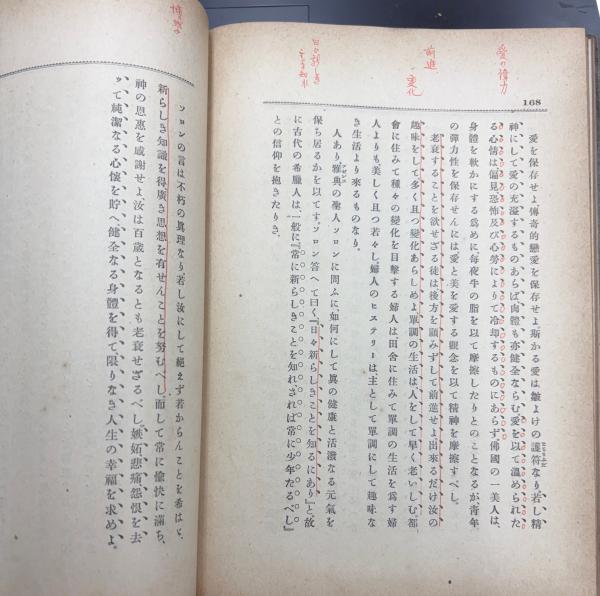 愛の偉力
前進
変化
日々新しき
ことを知れ
168
愛を保存せよ傳奇的戀愛を保存せよ斯かる愛は皺よけの護符なり若し精
神にして愛の充溢するものあらば肉體も亦健全ならむ愛を以て溫められた
る心情は偏見恐怖及び心勞によりて冷却するものにあらず佛國の一美人は、
身體を軟かにする爲めに每夜牛の脂を以て摩擦したりとのことなるが、靑年
の彈力性を保存せんには愛と美を愛する觀念を以て精神を摩擦すべし。
老衰することを欲せざる徒は後方を顧みずして前進せよ出來るだけ汝の
趣味をして多く且つ變化あらしめよ單調の生活は人をして早く老いしむ都
會に住みて種々の變化を目擊する婦人は田舍に住みて單調の生活を爲す婦
人よりも、美しく且つ若々し、婦人のヒステリーは、主として單調にして趣味な
き生活より來るものなり。
人あり雅典の聖人ソロンに問ふに如何にして眞の健康と活潑なる元氣を
保ち居るかを以てす。ソロン答へて曰く『日々新らしきことを知るにあり』と、故
に古代の希臘人は、一般に『常に新らしきことを知れ、されば常に少年たるべし』
との信仰を抱きたりき。
ソロンの言は不朽の眞理なり若し汝にして絕えず若からんことを希はゞ、
新らしき知識を得廣き思想を有せんことを努むべし。而して常に愉快に滿ち、
神の恩惠を感謝せよ汝は百歲となるとも老衰せざるべし。嫉妬悲痛怨恨を去
ッて純潔なる心懷を貯へ健全なる身體を得て限りなき人生の幸福を求めよ。